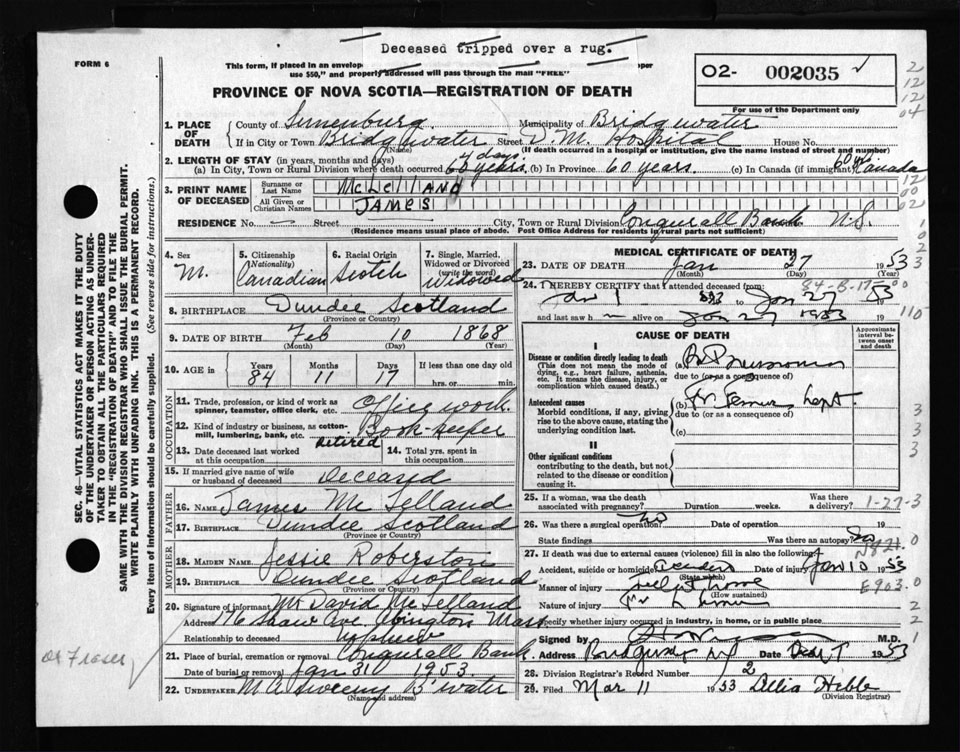 Deceased tripped over a rug.
FORM 6
This form, if placed in an envelop per
use $50," and properly addressed will pass through the mail "FREE"
PROVINCE OF NOVA SCOTIA—REGISTRATION OF DEATH
O2- 002035
For use of the Department only
2
12
12
04
1. PLACE OF DEATH
County of Lunenburg. Municipality of Bridgewater
If in City or Town Bridgewater Street D. M. Hospital House No.
(If death occurred in a hospital or institution, give the name instead of street and number)
2. LENGTH OF STAY (in years, months and days)
4 days.
(a) In City, Town or Rural Division where death occurred 60 years. (b) In Province 60 years. (c) In Canada (if immigrant) 60 yrs Canada
3. PRINT NAME OF DECEASED
Surname or Last Name McLELLAND
All Given or Christian Names JAMES
RESIDENCE No. — Street City, Town or Rural Division Conquerall Bank N.S.
(Residence means usual place of abode. Post Office Address for residents in rural parts not sufficient)
4. Sex M.
5. Citizenship (Nationality) Canadian
6. Racial Origin Scotch
7. Single, Married, Widowed or Divorced (write the word) Widowed
8. BIRTHPLACE Dundee Scotland
(Province or Country)
9. DATE OF BIRTH Feb 10 1868
(Month) (Day) (Year)
10. AGE in Years 84 Months 11 Days 17 If less than one day old
hrs. or min.
OCCUPATION
11. Trade, profession, or kind of work as spinner, teamster, office clerk, etc. Office work.
12. Kind of industry or business, as cotton-mill, lumbering, bank, etc. Book-keeper
13. Date deceased last worked at this occupation Retired
14. Total yrs. spent in this occupation
15. If married give name of wife or husband of deceased Deceased
FATHER
16. NAME James McLelland
17. BIRTHPLACE Dundee Scotland
(Province or Country)
MOTHER
18. MAIDEN NAME Jessie Roberston
19. BIRTHPLACE Dundee Scotland
(Province or Country)
20. Signature of informant Mr David McLelland
Address 176 Shaw Ave. Abington Mass
Relationship to deceased nephew
21. Place of burial, cremation or removal Conquerall Bank
Date of burial or removal Jan 31 1953.
22. UNDERTAKER M A Sweeny B'water
(Name and address)
or Fraser
SEC. 46—VITAL STATISTICS ACT MAKES IT THE DUTY
OF THE UNDERTAKER OR PERSON ACTING AS UNDER-
TAKER TO OBTAIN ALL THE PARTICULARS REQUIRED
IN THE "REGISTRATION OF DEATH" AND TO FILE THE
SAME WITH THE DIVISION REGISTRAR WHO SHALL ISSUE THE BURIAL PERMIT.
WRITE PLAINLY WITH UNFADING INK. THIS IS A PERMANENT RECORD.
Every item of information should be carefully supplied. (See reverse side for instructions.)
MEDICAL CERTIFICATE OF DEATH
23. DATE OF DEATH Jan 27 1953
(Month) (Day) (Year)
24. I HEREBY CERTIFY that I attended deceased from:
84-B-17
Jan 1 to Jan 27 53
and last saw h — alive on Jan 27 1953
CAUSE OF DEATH
Approximate interval between onset and death
I
Disease or condition directly leading to death
(This does not mean the mode of dying, e.g., heart failure, asthenia, etc. It means the disease, injury, or complication which caused death.)
(a) Br Pneumonia
due to (or as a consequence of)
Antecedent causes
Morbid conditions, if any, giving rise to the above cause, stating the underlying condition last.
(b) Fr. Femur Left
due to (or as a consequence of)
(c)
II
Other significant conditions
contributing to the death, but not related to the disease or condition causing it.
25. If a woman, was the death associated with pregnancy? Duration weeks. Was there a delivery? 1-27-3
26. Was there a surgical operation? No Date of operation 19
State findings Was there an autopsy? No
N821.
27. If death was due to external causes (violence) fill in also the following:
Accident, suicide or homicide Accident Date of injury Jan 10 1953
(State which)
Manner of injury Fell at home E903.0
(How sustained)
Nature of injury Fr L Femur
Specify whether injury occurred in industry, in home, or in public place
Signed by M.D.
Address Bridgewater NS Date 1953
28. Division Registrar's Record Number 2
29. Filed Mar 11 1953 Lillia Hebb
(Division Registrar)